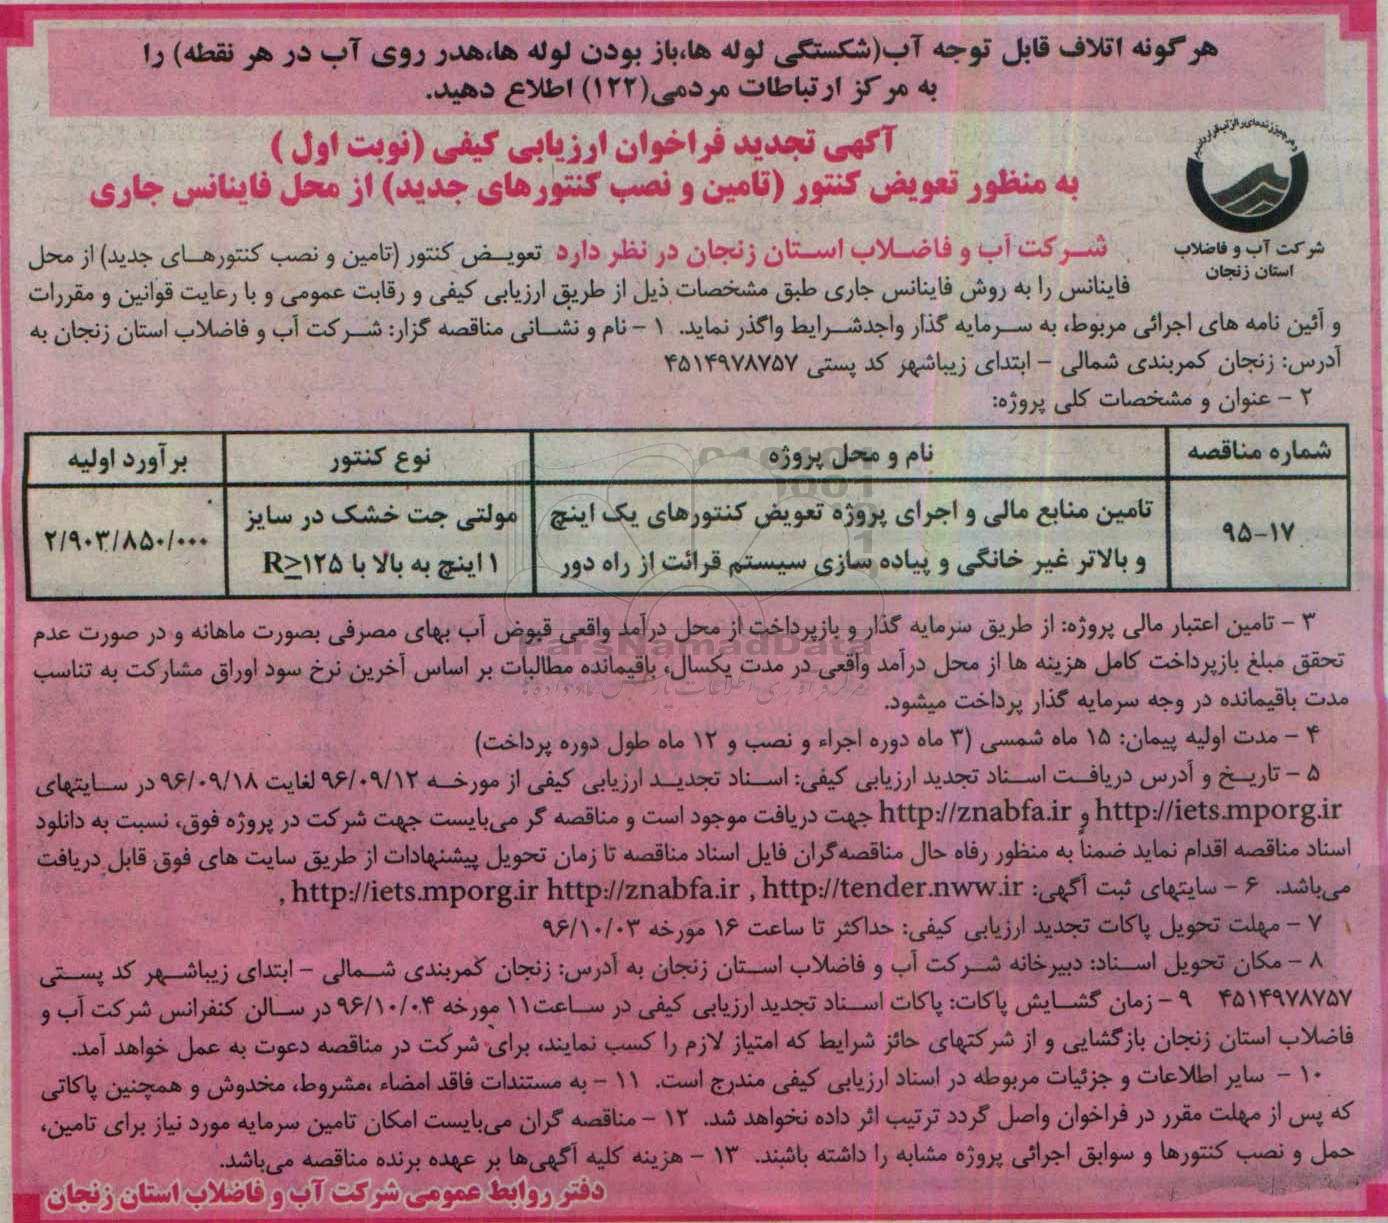 هرگونه اتلاف قابل توجه آب(شکستگی لوله ها،باز بودن لوله ها،هدر روی آب در هر نقطه) را
به مرکز ارتباطات مردمی(۱۲۲) اطلاع دهید.
شرکت آب و فاضلاب
استان زنجان
آگهی تجدید فراخوان ارزیابی کیفی (نوبت اول )
به منظور تعویض کنتور (تامین و نصب کنتورهای جدید) از محل فاینانس جاری
شرکت آب و فاضلاب استان زنجان در نظر دارد تعویض کنتور (تامین و نصب کنتورهای جدید) از محل
فاینانس را به روش فاینانس جاری طبق مشخصات ذیل از طریق ارزیابی کیفی و رقابت عمومی و با رعایت قوانین و مقررات
و آئین نامه های اجرائی مربوط، به سرمایه گذار واجدشرایط واگذر نماید. ۱ - نام و نشانی مناقصه گزار: شرکت آب و فاضلاب استان زنجان به
آدرس: زنجان کمربندی شمالی - ابتدای زیباشهر کد پستی ۴۵۱۴۹۷۸۷۵۷
۲ - عنوان و مشخصات کلی پروژه:
شماره مناقصه | نام و محل پروژه | نوع کنتور | برآورد اولیه
۹۵-۱۷ | تامین منابع مالی و اجرای پروژه تعویض کنتورهای یک اینچ | مولتی جت خشک در سایز | ۲/۹۰۳/۸۵۰/۰۰۰
و بالاتر غیر خانگی و پیاده سازی سیستم قرائت از راه دور | ۱ اینچ به بالا با R≥۱۲۵
۳ - تامین اعتبار مالی پروژه: از طریق سرمایه گذار و بازپرداخت از محل درآمد واقعی قبوض آب بهای مصرفی بصورت ماهانه و در صورت عدم
تحقق مبلغ بازپرداخت کامل هزینه ها از محل درآمد واقعی در مدت یکسال، باقیمانده مطالبات بر اساس آخرین نرخ سود اوراق مشارکت به تناسب
مدت باقیمانده در وجه سرمایه گذار پرداخت میشود.
۴ - مدت اولیه پیمان: ۱۵ ماه شمسی (۳ ماه دوره اجراء و نصب و ۱۲ ماه طول دوره پرداخت)
۵ - تاریخ و آدرس دریافت اسناد تجدید ارزیابی کیفی: اسناد تجدید ارزیابی کیفی از مورخه ۹۶/۰۹/۱۲ لغایت ۹۶/۰۹/۱۸ در سایتهای
http://iets.mporg.ir و http://znabfa.ir جهت دریافت موجود است و مناقصه گر می‌بایست جهت شرکت در پروژه فوق، نسبت به دانلود
اسناد مناقصه اقدام نماید ضمناً به منظور رفاه حال مناقصه‌گران فایل اسناد مناقصه تا زمان تحویل پیشنهادات از طریق سایت های فوق قابل دریافت
می‌باشد. ۶ - سایتهای ثبت آگهی: http://iets.mporg.ir http://znabfa.ir , http://tender.nww.ir ,
۷ - مهلت تحویل پاکات تجدید ارزیابی کیفی: حداکثر تا ساعت ۱۶ مورخه ۹۶/۱۰/۰۳
۸ - مکان تحویل اسناد: دبیرخانه شرکت آب و فاضلاب استان زنجان به آدرس: زنجان کمربندی شمالی - ابتدای زیباشهر کد پستی
۴۵۱۴۹۷۸۷۵۷ ۹ - زمان گشایش پاکات: پاکات اسناد تجدید ارزیابی کیفی در ساعت۱۱ مورخه ۹۶/۱۰/۰۴ در سالن کنفرانس شرکت آب و
فاضلاب استان زنجان بازگشایی و از شرکتهای حائز شرایط که امتیاز لازم را کسب نمایند، برای شرکت در مناقصه دعوت به عمل خواهد آمد.
۱۰ - سایر اطلاعات و جزئیات مربوطه در اسناد ارزیابی کیفی مندرج است. ۱۱ - به مستندات فاقد امضاء ،مشروط، مخدوش و همچنین پاکاتی
که پس از مهلت مقرر در فراخوان واصل گردد ترتیب اثر داده نخواهد شد. ۱۲ - مناقصه گران می‌بایست امکان تامین سرمایه مورد نیاز برای تامین،
حمل و نصب کنتورها و سوابق اجرائی پروژه مشابه را داشته باشند. ۱۳ - هزینه کلیه آگهی‌ها بر عهده برنده مناقصه می‌باشد.
دفتر روابط عمومی شرکت آب و فاضلاب استان زنجان
ParsNamadData